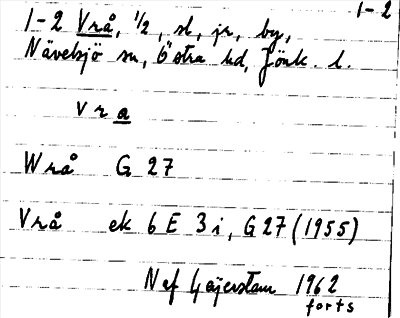 1-2
1-2 Vrå, 1/2, sl, jr, by,
Nävelsjö sn, Östra hd, Jönk. l.
Vra
Wrå G 27
Vrå ek 6 E 3 i, G 27 (1955)
1962
forts